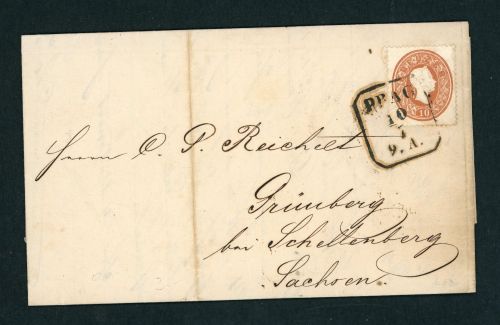 10
PRAG
10
7
9. A.
Herrn C. P. Reichelt
Grünberg
bei Schellenberg
Sachsen.